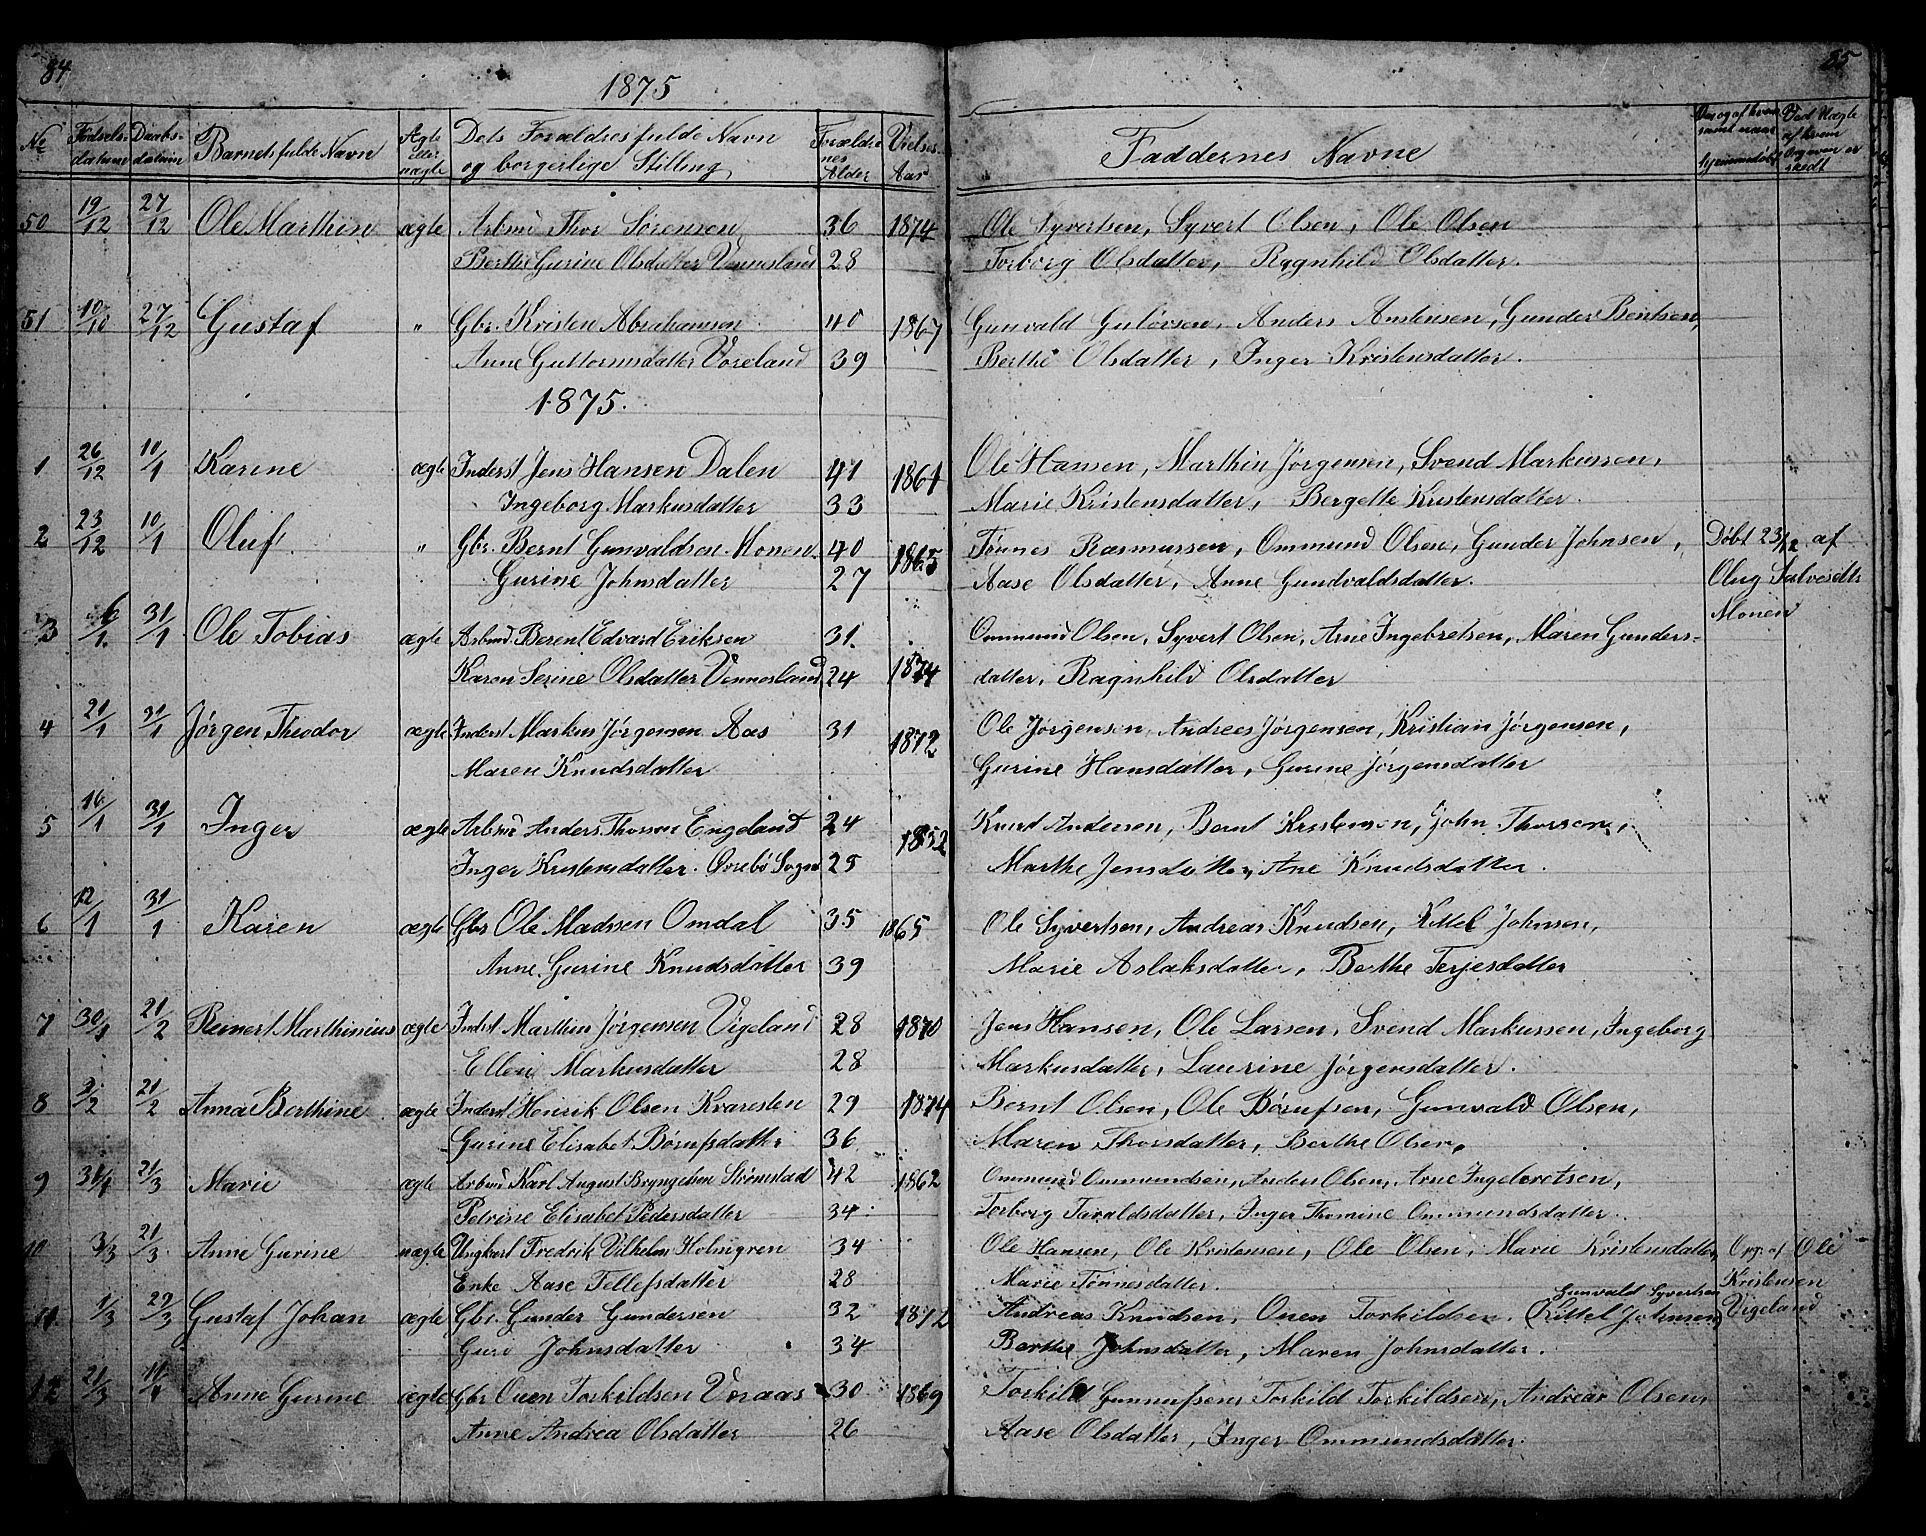 84
1875
85
No Fødsels- datum Daabs- datum Barnets fulde Navn Ægte eller uægte Dets Forældres fulde Navn og borgerlige Stilling Forældre- nes Alder Vielses- Aar Faddernes Navne
50 19/12 27/12 Ole Marthin ægte Arbmd Thor Sørensen 36 1874 Ole Syvertsen, Syvert Olsen, Ole Olsen
Berthe Gurine Olsdatter Vennesland 28 Torborg Olsdatter, Ragnhild Olsdatter.
51 10/10 27/12 Gustaf " Gbr. Kristen Abrahamsen 40 1867 Gunvald Guløvsen, Anders Anstensen, Gunder Bentsen,
Anne Guttormsdatter Voreland 39 Berthe Olsdatter, Inger Kristensdatter.
1875.
1 26/12 10/1 Karine ægte Inderst Jens Hansen Dalen 41 1861 Ole Hansen, Marthin Jørgensen, Svend Markussen,
Ingeborg Markusdatter 33 Marie Kristensdatter, Bergette Kristensdatter.
2 23/12 10/1 Oluf. " Gbr. Bernt Gunvaldsen Monen 40 1865 Tønnes Rasmussen, Ommund Olsen, Gunder Johnsen, Døbt 23/12 af
Gurine Johnsdatter 27 Aase Olsdatter, Anne Gundvaldsdatter. Olug Salvesdtr
Monen
3 6/1 31/1 Ole Tobias ægte Arbmd. Berent Edvard Eriksen 31. Ommund Olsen, Syvert Olsen, Arne Ingebretsen, Maren Gunders-
Karen Serine Olsdatter Vennesland 24 1874 datter, Ragnhild Olsdatter
4 21/1 31/1 Jørgen Theodor ægte Inderst Markus Jørgensen Aas 31 1872 Ole Jørgensen, Andreas Jørgensen, Kristian Jørgensen,
Maren Knudsdatter Gurine Hansdatter, Gurine Jørgensdatter
5 16/1 31/1 Inger ægte Arbmd Anders Thorsen Engeland 24 1852 Knud Andersen, Bernt Kristensen, John Thorsen,
Inger Kristensdatter. Øvrebø Sogn 25 Marthe Jensdatter, Ane Knudsdatter.
6 12/1 31/1 Karen ægte Gbr Ole Madsen Omdal 35 1865 Ole Syvertsen, Andreas Knudsen, Kittel Johnsen,
Anne Gurine Knudsdatter 39 Marie Aslaksdatter, Berthe Terjesdatter
7 30/1 21/2 Reinert Marthinius ægte Inderst Marthin Jørgensen Vigeland 28 1870 Jens Hansen, Ole Larsen, Svend Markussen, Ingeborg
Ellen Markusdatter 28 Markusdatter, Laurine Jørgensdatter.
8 2/2 21/2 Anna Berthine. ægte Inderst Henrik Olsen Kvaresten 29 1874 Bernt Olsen, Ole Børufsen, Gunvald Olsen,
Gurine Elisabet Børufsdatter 36 Maren Thorsdatter, Berthe Olsen,
9 31/1 21/3 Marie ægte Arbmd Karl August Bryngelsen Strømstad 42 1862 Ommund Ommundsen, Anders Olsen, Arne Ingebretsen,
Petrine Elisabet Pedersdatter 34 Torborg Taraldsdatter, Inger Thomine Ommundsdatter.
10 3/3 21/3 Anne Gurine uægte Ungkarl Fredrik Vilhelm Holmgren 34 Ole Hansen, Ole Kristensen, Ole Olsen, Marie Kristensdatter, Opg. af Ole
Enke Aase Tellefsdatter 28 Marie Tønnesdatter. Kristensen
Gunvald Syvertsen
11 1/3 29/3 Gustaf Johan ægte Gbr. Gunder Gundersen 32 1872 Andreas Knudsen, Ouen Torkildsen, (Kittel Johnsen) Vigeland
Guro Johnsdatter 34 Berthe Johnsdatter, Maren Johnsdatter.
12 21/3 11/4 Anne Gurine ægte Gbr Ouen Torkildsen Voraas 30 1869 Torkild Gunnufsen, Torkild Torkildsen, Andreas Olsen,
Anne Andrea Olsdatter 26 Aase Olsdatter, Inger Ommundsdatter.